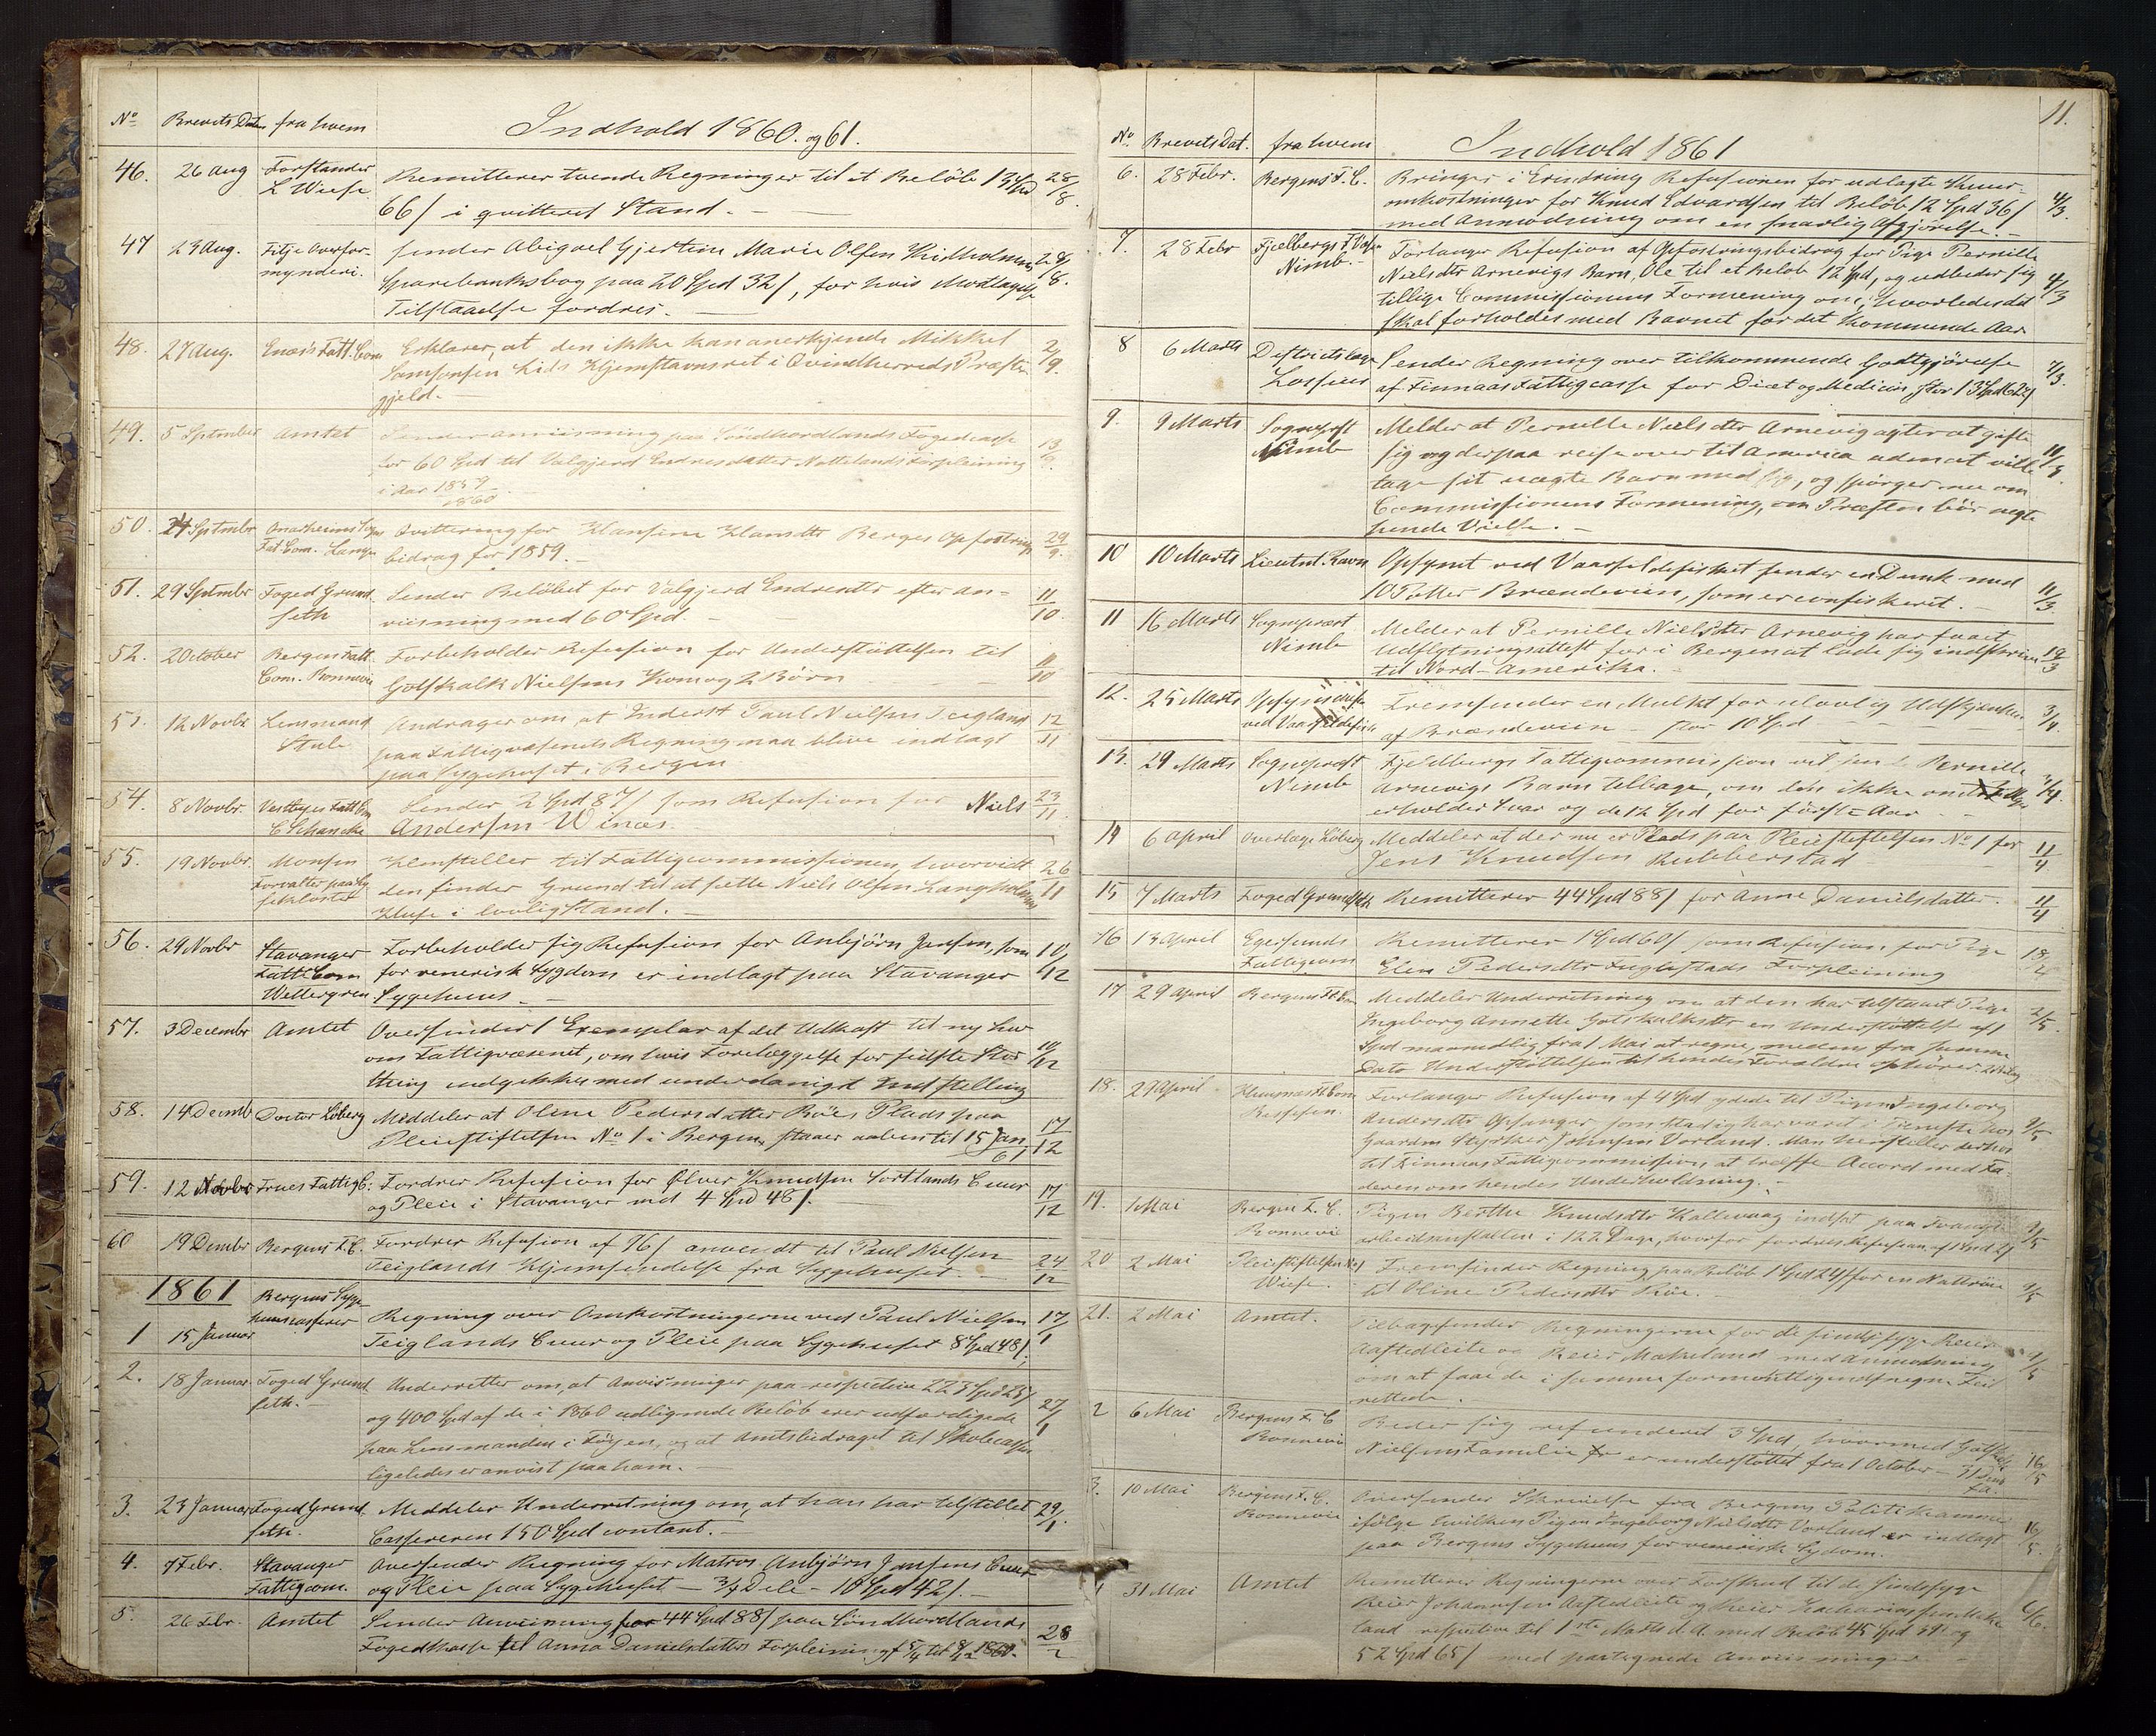 No Brevets Dato fra hvem Indhold 1860. og 61.
46. 26 Aug Forstander L Wiese Remitterer tvende Regninger til et Beløb 28/8.
66/ i qvitteret Stand. —
47 23 Aug. Fitje Overfor-
mynderi. Sender Abigael Gjertine Marie Olsen 28/8.
Sparebanksbog paa 20 Spd 32/, for hvis Modtagelse
Tilstaaelse fordres. —
48. 27 Aug. Enæs Fatt. Com Erklærer, at den ikke kan anerkjende Mikkel 2/9.
Samsonsen Lids Hjemstavnsret i Qvindherreds Præste-
gjeld. —
49. 5 Septmber Amtet Sender Anviisning paa Søndhordlands Fogedcasse 13/9.
for 60 Spd til Valgjerd Endresdatter Nattelands Forpleining
i Aar 1859
1860
50. 24 Septmbr Onarheims Sogns
Fat. Com. Lange Qvittering for Hansine Hansdtr Berges Opfostrings 29/9.
bidrag for 1859. —
51. 29 Septmbr Foged Grund
seth Sender Beløbet for Valgjerd Endresdtr efter an- 11/10
viisning med 60 Spd. —
52. 2 October Bergens Fatt.
Com. Ronnevie Forbeholder Refusion for Understøttelsen til 11/10
Gotskalk Nielsens Kone og 2 Børn
53. 12 Novbr Lensmand
Stub Andrager om at Inderst Paul Nielsen Teigland 12/11
paa Fattigvæsenets Regning maa blive indlagt
paa Sygehuset i Bergen
54. 8 Novbr. C Schancke Sender 2 Spd 87/ som Refusion for Niels 23/11.
Andersen Winæs.
55. 19 Novbr. Monsen
Forvalter paa Ly
sekloster Henstiller til Fattigcommissionen, hvorvidt 26/11
den finder Grund til at sette Niels Olsen Langholmens
Huse i lovlig Stand. —
56. 29 Novbr Stavanger
Fatt. Com
Wettergren Forbeholder sig Refusion for Anbjørn Jansen, som 10/12
for venerisk Sygdom er indlagt paa Stavanger
Sygehuus. —
57. 3 Decembr Amtet Oversender 1 Exemplar af det Udkast til ny Lov 10/12
om Fattigvæsenet, om hvis Forelæggelse for sidste Stor
thing indgikkes med underdanigst Indstilling
58. 14 Decmb Doctor Løberg Meddeler at Oline Pedersdatter Røes Plads paa 17/12
Pleiestiftelsen No 1 i Bergen, staaer aaben til 15 Jan
61
59. 12 Novbr Fattig C: Fordrer Refusion for Ølver Knudsen Sortlands Cuur 17/12
og Pleie i Stavanger med 4 Spd 48/.
60 19 Decmbr Bergens F. C. Fordrer Refusion af 76/ anvendt til Paul Nielsen 24/12
Teiglands Hjemsendelse fra Sygehuset. —
1861
1 15 Januar Bergens Syge
huuscasserer Regning over Omkostningerne ved Paul Nielsen 17/1
Teiglands Cuur og Pleie paa Sygehuset 8 Spd 48/
2. 18 Januar Foged Grund
seth. Underretter om, at Anvisninger paa respective 27/1
og 400 Spd af de i 1860 udlignede Beløb ere udfærdigede
paa Lensmanden i Føyen, og at Amtsbidraget til Skolecassen
ligeledes er anvist paa ham. —
3. 23 Januar Foged Grund
seth. Meddeler Underretning om, at han har tilstillet 29/1
Cassereren 150 Spd contant. —
4. 7 Febr. Stavanger
Fattigcom. Oversender Regning for Matros Anbjørn Jansens Cuur
og Pleie paa Sygehuset — 3/4 Dele — 10 Spd 42/. —
5. 26 Febr. Amtet Sender Anviisning for 44 Spd 88/ paa Søndhordlands 28/2
Fogedkasse til Anna Danielsdatters Forpleining
11.
No Brevets Dat. fra hvem Indhold 1861
6. 28 Febr. Bergens F. C. Bringer i Erindring Refusionen for udlagte Kuur- 4/3.
omkostninger for Knud Edvardsen til Beløb 12 Spd 36/
med Anmodning om en snarlig Afgjørelse. —
7. 28 Febr Fjelbergs
Nimb. — Forlanger Refusion af Opfostringsbidrag for Pige Pernille 4/3
Nielsdtr Arnevigs Barn, Ole til et Beløb 12 Spd, og udbeder sig
tillige Commissionens Formening om, hvorledes det
skal forholdes med Barnet for det kommende Aar
8 6 Marts Districtslæge Sender Regning over tilkommende Godtgjørelse 7/3.
af Finnaas Fattigcasse for Diæt og Medicin, stor 13 Spd 62/
9. 9 Marts Sognepræst
Nimb Melder at Pernille Nielsdtr Arnevig agter at gifte 11/3.
sig og derpaa reise over til America uden at ville
tage sit uægte Barn med sig, og spørger nu om
Commissionens Formening, om Præsten bør negte
hende Vielse. —
10 10 Marts Lieutnt. Ravn Opsynet ved Vaarsildefisket sender en Dunk med 11/3.
10 Potter Brændeviin, som er confiskeret. —
11 16 Marts Sognepræst
Nimb Melder at Pernille Nielsdtr Arnevig har faaet 19/3
Udflytningsattest for i Bergen at lade sig indskrive
til Nord-Amerika. —
12. 25 Marts
ved Vaarsildefisk Fremsender en Mulkt for ulovlig Udskjænken 3/4.
af Brændeviin — stor 10 Spd — —
13. 29 Marts Sognepræst
Nimb Fjeldbergs Fattigcommission vil sende Pernille 3/4
Arnevigs Barn tilbage, om den ikke
erholder Svar og de 12 Spd for første Aar —
14 6 April Overlæge Løberg Meddeler at der nu er Plads paa Pleiestiftelsen No 1 for 11/4
Jens Knudsen Rubberstad
15 7 Marts Foged Grundseth Remitterer 44 Spd 88/ for Anne Danielsdatter. 11/4
16 13 April Egersunds
Fattigcom Remitterer 1 Spd 60/ som Refusion for Pige 18/4
Elen Pedersdtr Fuglestads Forpleining
17 29 April Bergens Ft. Com Meddeler Underretning om at den har tilstaaet Pige 2/5.
Ingeborg Annette Gotskalksdtr en Understøttelse af 1
Spd maanedlig fra 1 Mai at regne, medens fra samme
Dato Understøttelsen til hendes Forældre ophører.
18. 29 April Forlanger Refusion af 4 Spd ydede til Pigen Ingeborg 9/5
Andersdtr Opsanger, som stadig har været i Tjeneste hos
Gaardm Styrker Johnsen Vorland. Man henstiller derhos
til Finnaas Fattigcommission at træffe Accord med Fa-
deren om hendes Underholdning. —
19. 1 Mai Bergens F. C.
Ronnevie Pigen Berthe Knudsdtr Kallevaag indsat paa Tvangs 9/5
arbeidsanstalten i 122 Dage, hvorfor fordres Refusion af
20 2 Mai Pleiestiftelsen No 1
Wiese. Fremsender Regning paa Beløb 1 Spd 24/ for en Nattrøie 9/5
til Oline Pedersdtr Røe. —
21. 2 Mai Amtet. Tilbagesender Regningerne for de sindssyge Reier 9/5
Aastedleite og Reier Mækeland med Anmodning
om at faae de i samme formentligen Feil
rettede.
2 6 Mai Bergens F. C
Ronnevie Beder sig refunderet 3 Spd, hvormed Gotskalk 16/5
Nielsens Familie er understøttet fra 1 October — 31
3. 10 Mai Bergens F. C.
Ronnevie Oversender Skrivelse fra Bergens Politikammer 16/5.
ifølge hvilken Pigen Ingeborg Nielsdtr Vorland er indlagt
paa Bergens Sygehuus for venerisk Sydom.
31 Mai Amtet Remitterer Regningerne over Forskud til de sindssyge 6/6.
Reier Johannesen Aastedleite og Reier Zachariassen Mæke
land respective til 1ste Marts d. A. med Beløb 45 Spd 39/ og
52 Spd 65/ med paategnede Anviisninger —